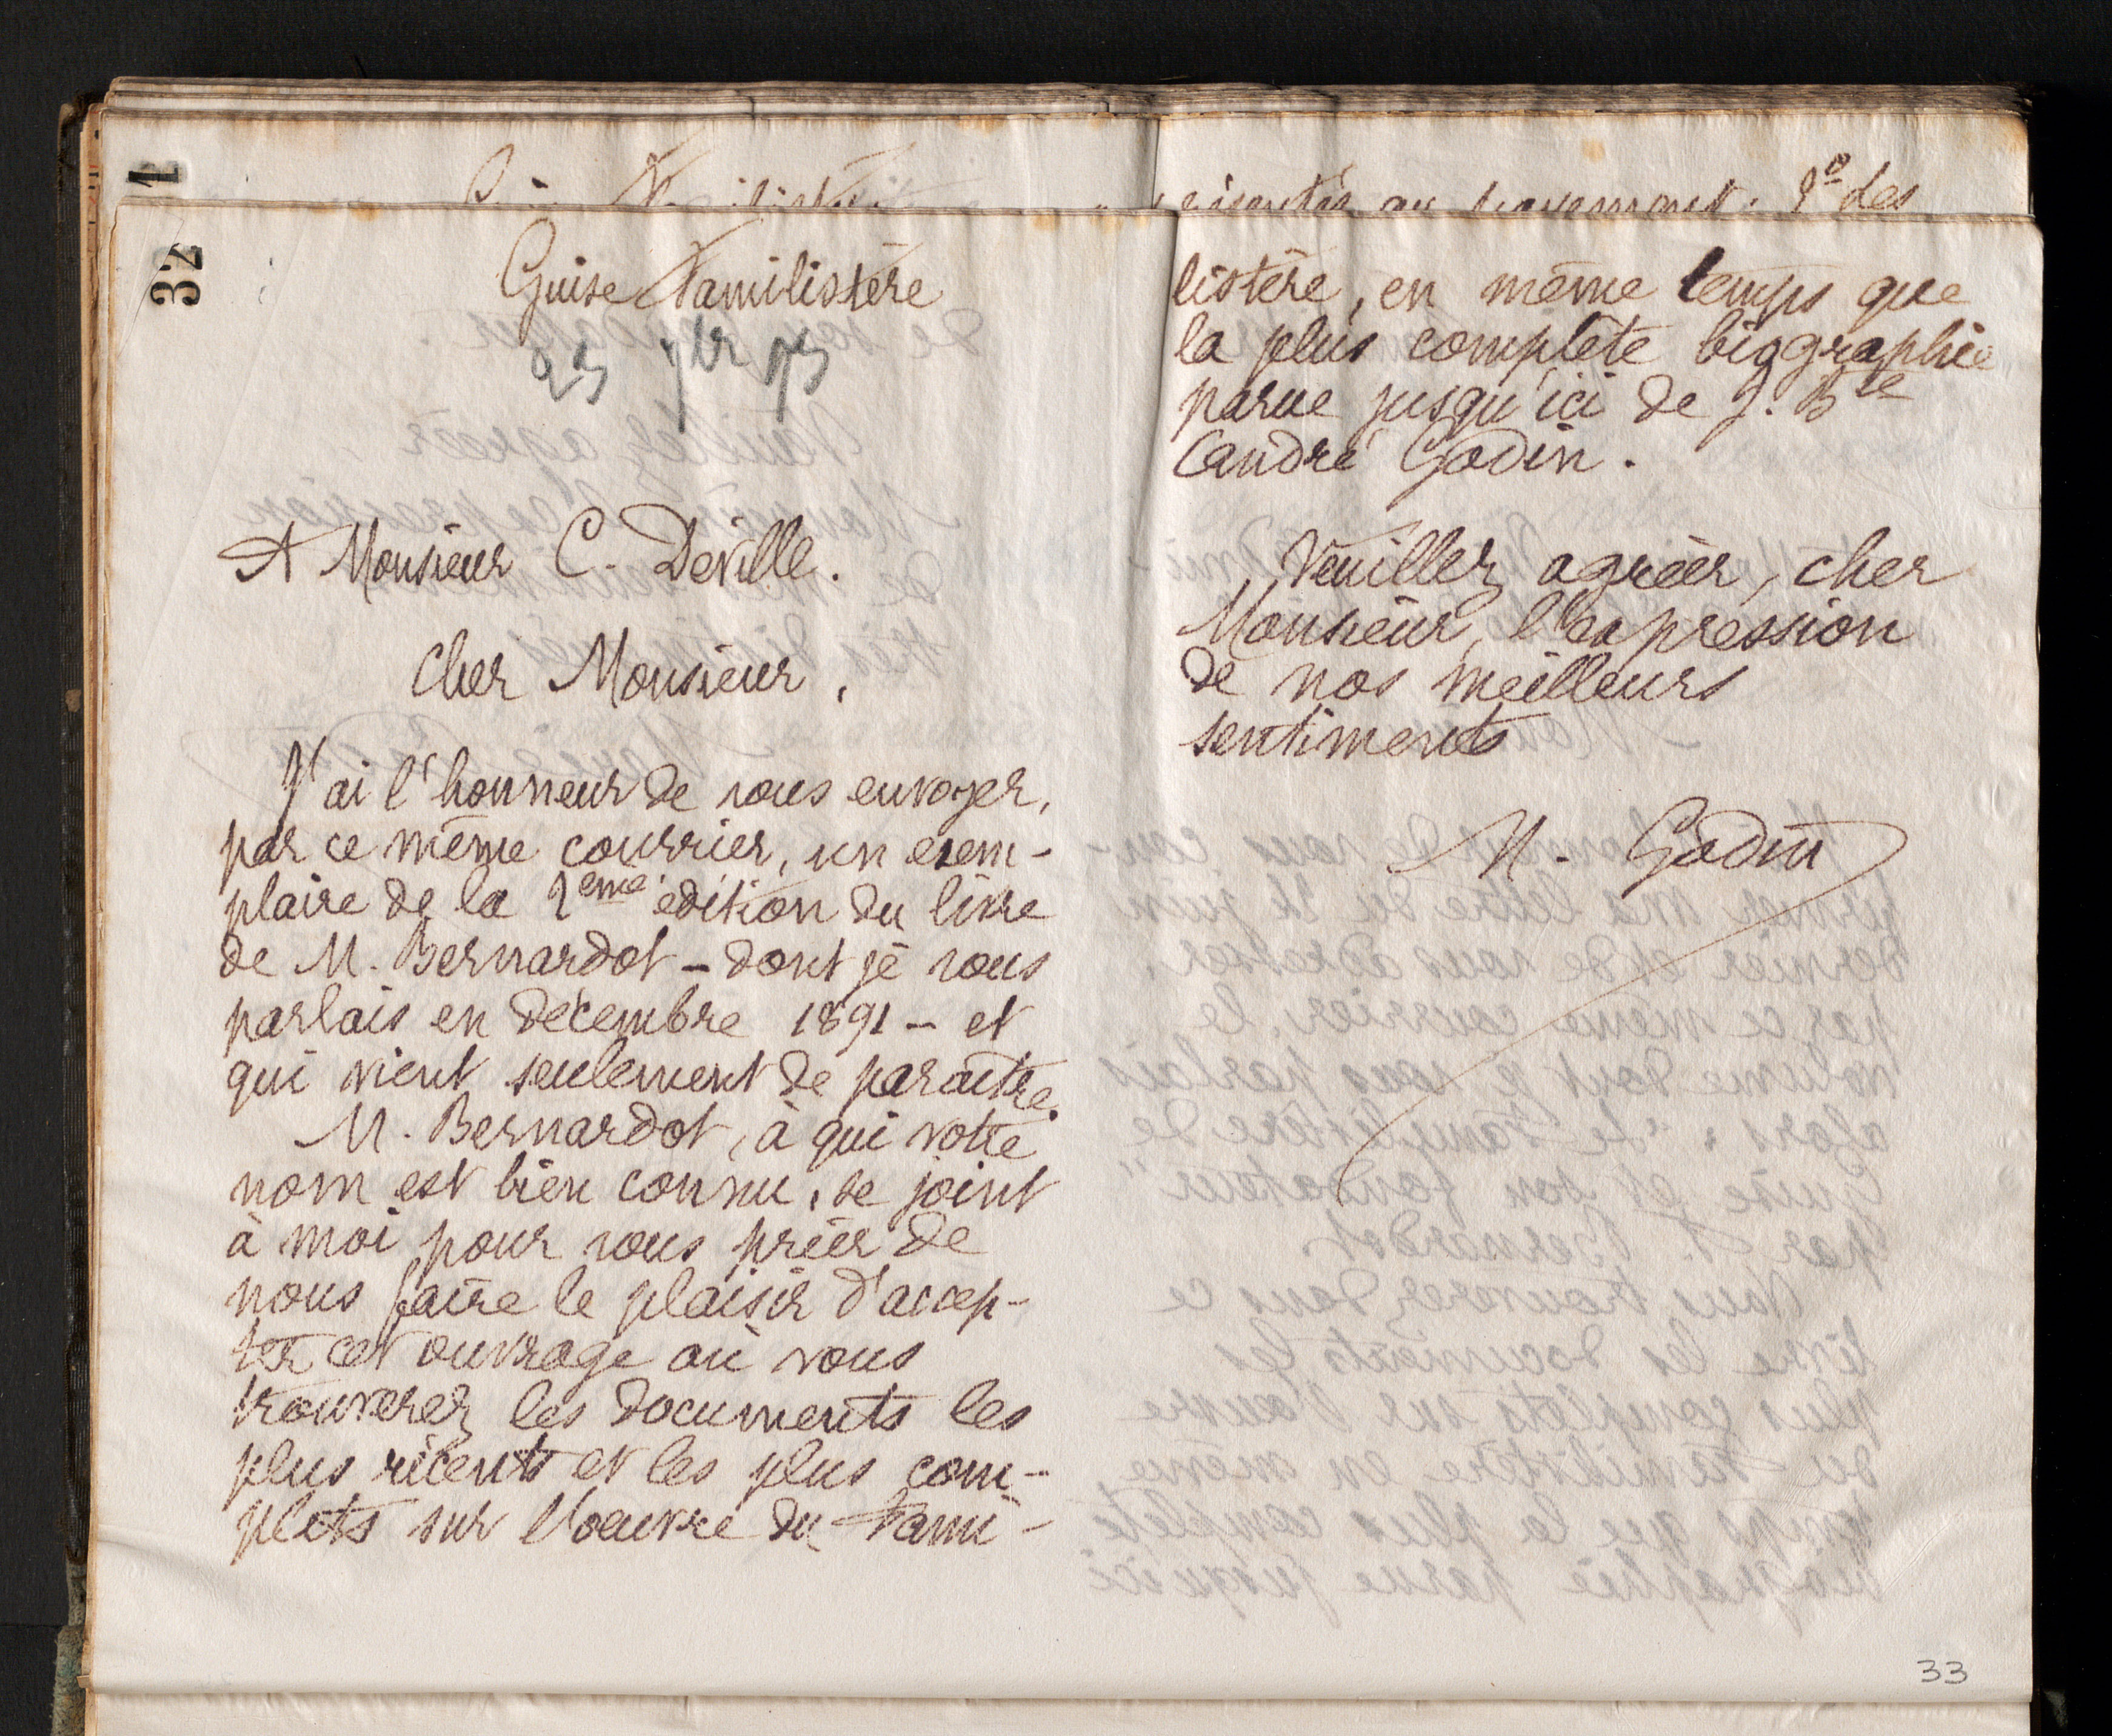 32
Guise Familistère
23 9bre 93
A Monsieur C. Deville.
Cher Monsieur,
J'ai l'honneur de vous envoyer,
par ce même courrier, un exem-
plaire de la 2eme édition du livre
de M. Bernardot - dont je vous
parlais en décembre 1891 - et
qui vient seulement de paraître.
M. Bernardot, à qui votre
nom est bien connu, se joint
à moi pour vous prier de
nous faire le plaisir d'accep-
ter cet ouvrage où vous
trouverez les documents les
plus récents et les plus com-
plets sur l'oeuvre du Fami-
des
listère, en même temps que
la plus complète biographie
parue jusqu'ici de J. Bte
André Godin.
Veuillez agréer, cher
Monsieur, l'expression
de nos meilleurs
sentiments
M. Godin
33